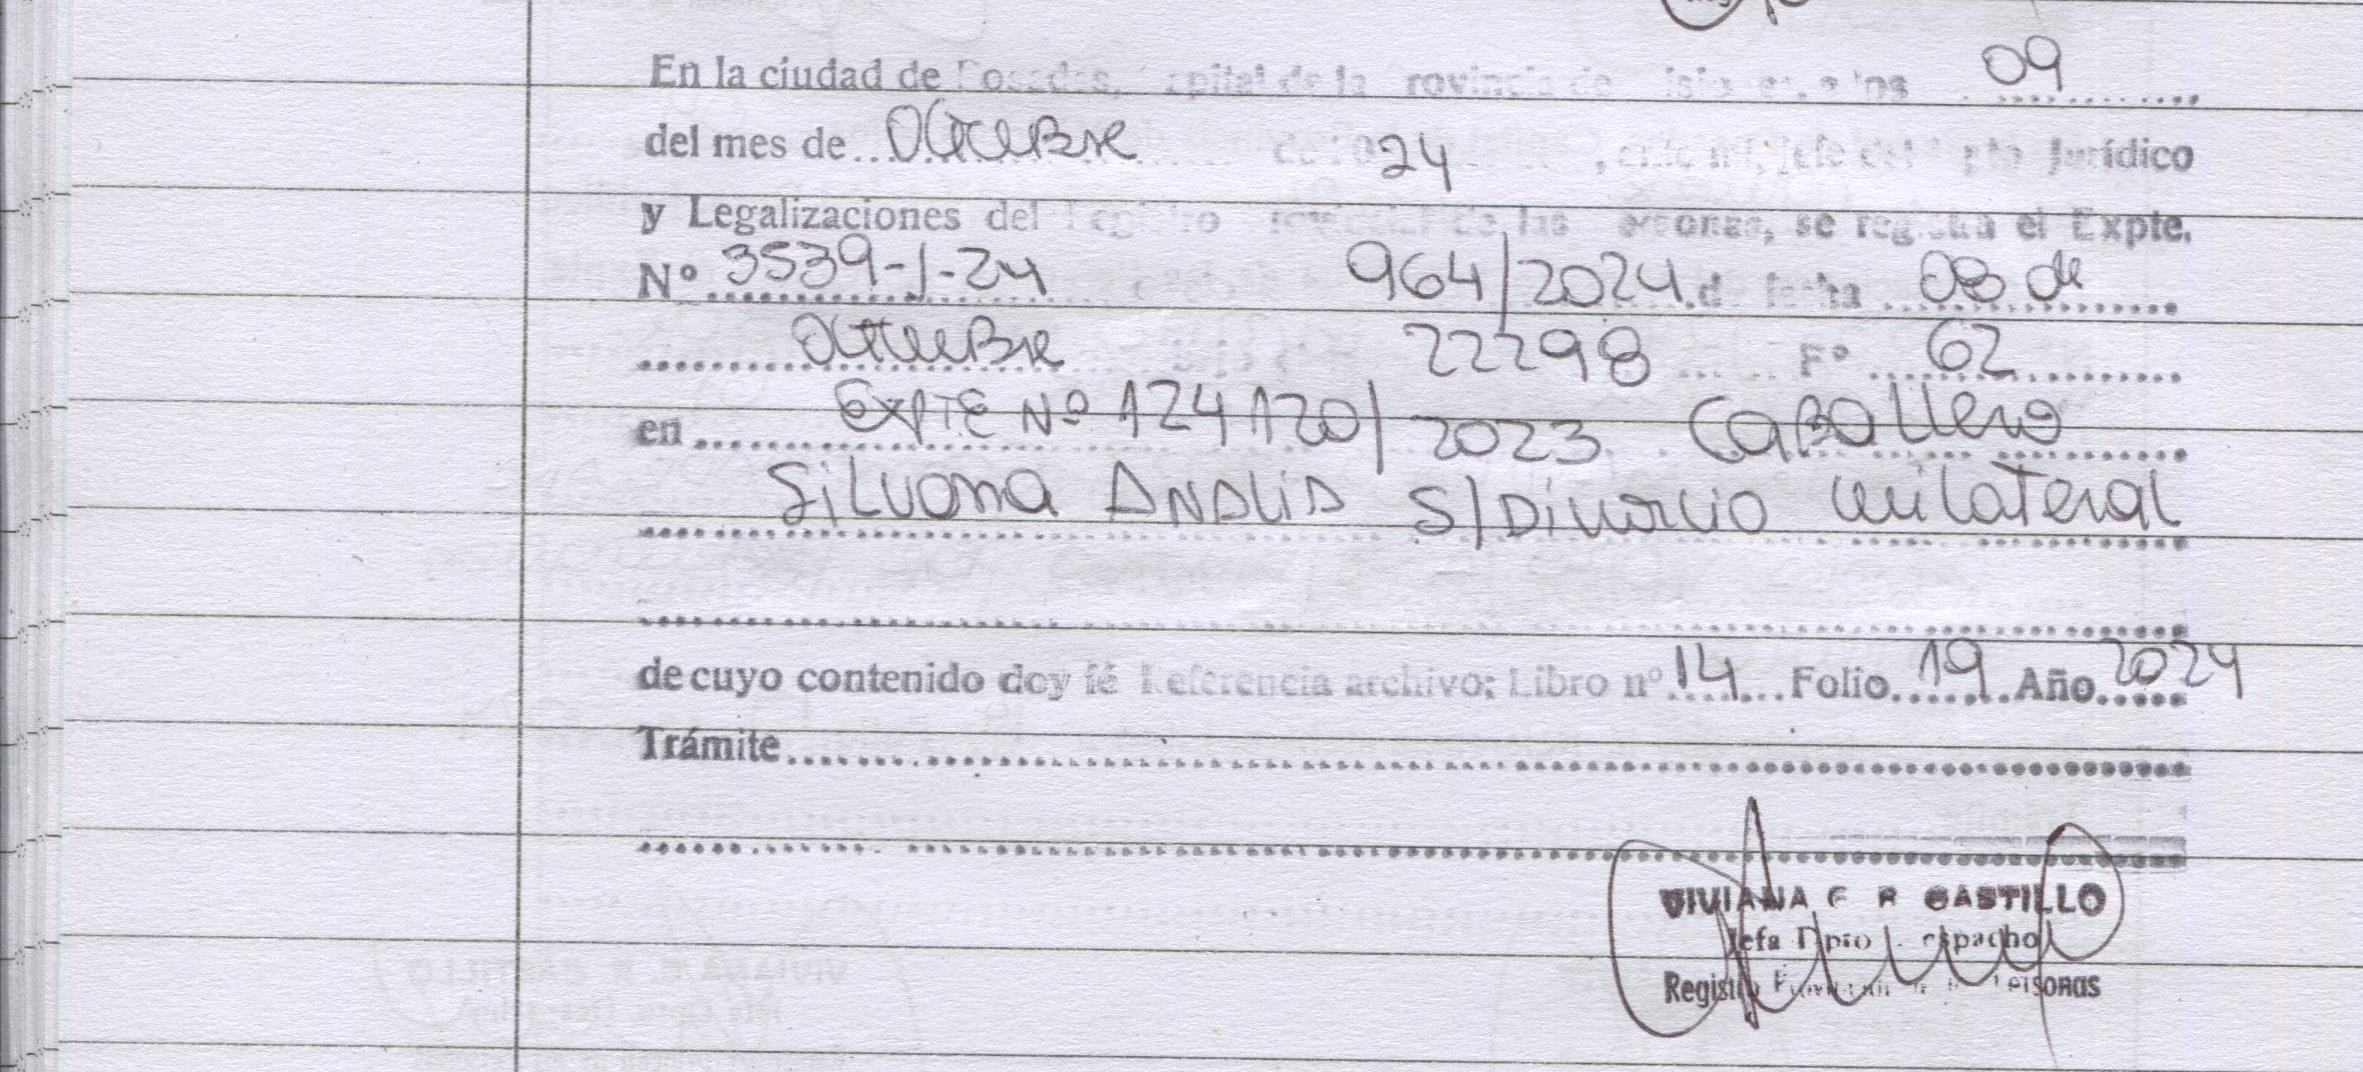 En la ciudad de Posadas, Capital de la Provincia de Misiones a los 09
del mes de Octubre de 24, ante mi, Jefe del Dpto Jurídico
y Legalizaciones del Registro Provincial de las Personas, se registra el Expte.
Nº 3539-J-24 964/2024 de fecha 08 de
Octubre 22298 Fº 62
en EXPTE Nº 124120/2023 Caballero
Silvana Analia S/Divorcio unilateral
de cuyo contenido doy fé Referencia archivo: Libro nº 14 Folio 19 Año 2024
Trámite
VIVIANA CASTILLO
Jefa Dpto Despacho
Registro Personas